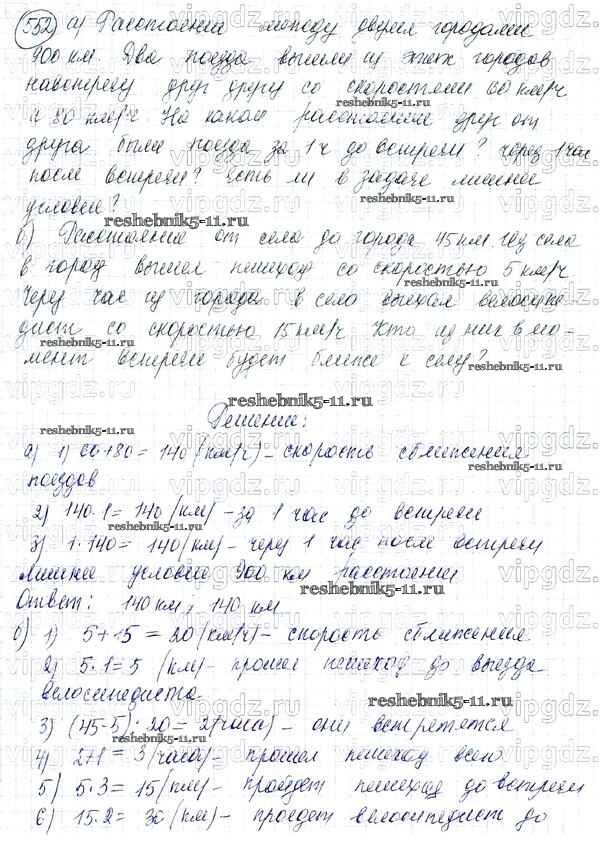 552 а) Расстояние между двумя городами
900 км. Два поезда вышли из этих городов
навстречу друг другу со скоростями 60 км/ч
и 80 км/ч. На каком расстоянии друг от
друга были поезда за 1 ч до встречи? Через 1 час
после встречи? Есть ли в задаче лишнее
условие?
б) Расстояние от села до города 45 км. Из села
в город вышел пешеход со скоростью 5 км/ч
Через час из города в село выехал велосипе-
дист со скоростью 15 км/ч. Кто из них в мо-
мент встречи будет ближе к селу?
Решение:
а) 1) 60+80 = 140 (км/ч) – скорость сближения
поездов
2) 140·1 = 140 (км) – за 1 час до встречи
3) 1·140 = 140 (км) – через 1 час после встречи
Лишнее условие 900 км расстояние
Ответ: 140 км; 140 км.
б) 1) 5+15 = 20 (км/ч) – скорость сближения
2) 5·1 = 5 (км) – прошел пешеход до выезда
велосипедиста
3) (45-5) : 20 = 2 (часа) – они встретятся
4) 2+1 = 3 (часа) – прошел пешеход всего
5) 5·3 = 15 (км) – пройдет пешеход до встречи
6) 15·2 = 30 (км) – проедет велосипедист до
reshebnik5-11.ru
vipgdz.